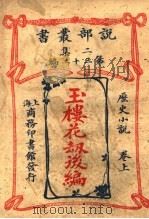 說部叢書
二集
歷史小說 卷上
玉樓花劫後編
上海商務印書館發行